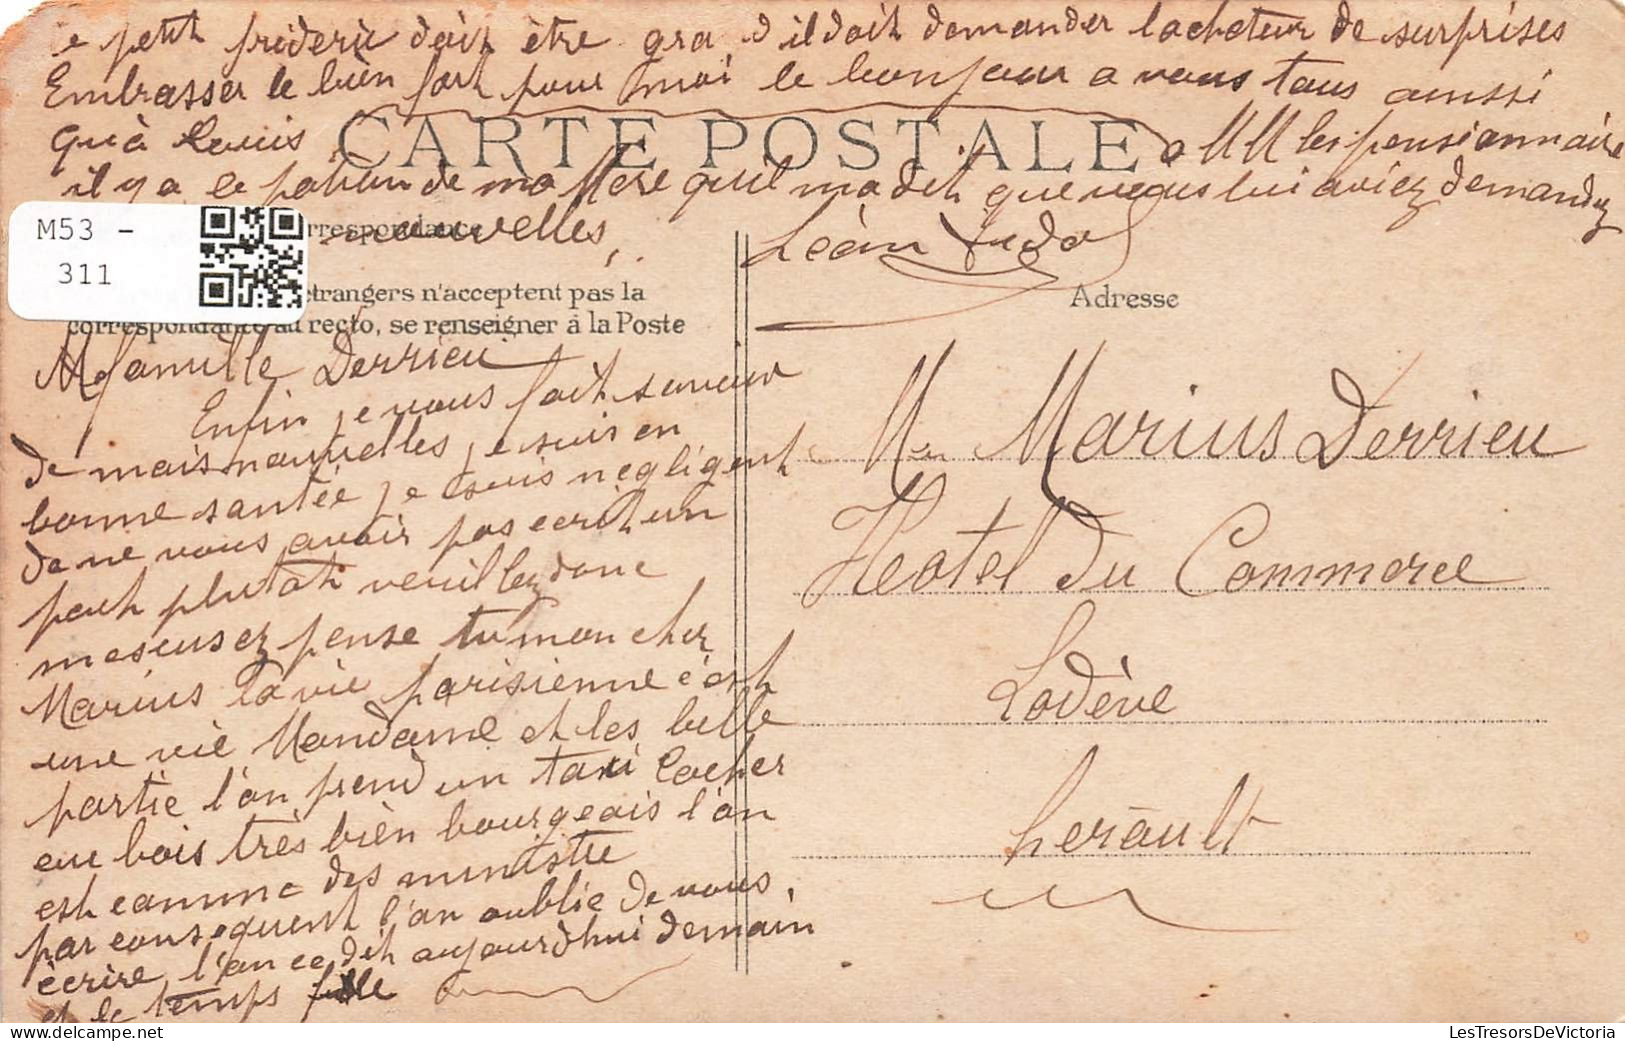 e petit frideric doit être gra d il doit demander lacheteur de surprises
Embrasser le bien fort pour moi le bonjour a vous tous aussi
qu'à Louis
CARTE POSTALE
a MM les pensionnaire
il y a le de ma Mere quil ma dit que vous lui aviez demandez
nouvelles,
Léon
M53 -
311
rrespondance
étrangers n'acceptent pas la
correspondance au recto, se renseigner à la Poste
Adresse
M famille Derrieu
Enfin je vous fait savoir
de mais nouvelles je suis en
bonne santée je suis negligent
de ne vous avoir pas ecrit un
peut plutôt veuillez donc
mescusez pense tu mon cher
Marius la vie parisienne c'est
une vie Mondame et les belle
partie l'on prend un taxi
au bois très bien bourgeois l'on
est comme des ministre
par consequent l'on oublie de vous
écrire, l'on ce dit aujourdhui demain
et le temps file
Mr Marius Derrieu
Hotel du Commerce
Lodève
herault
LesTresorsDeVictoria